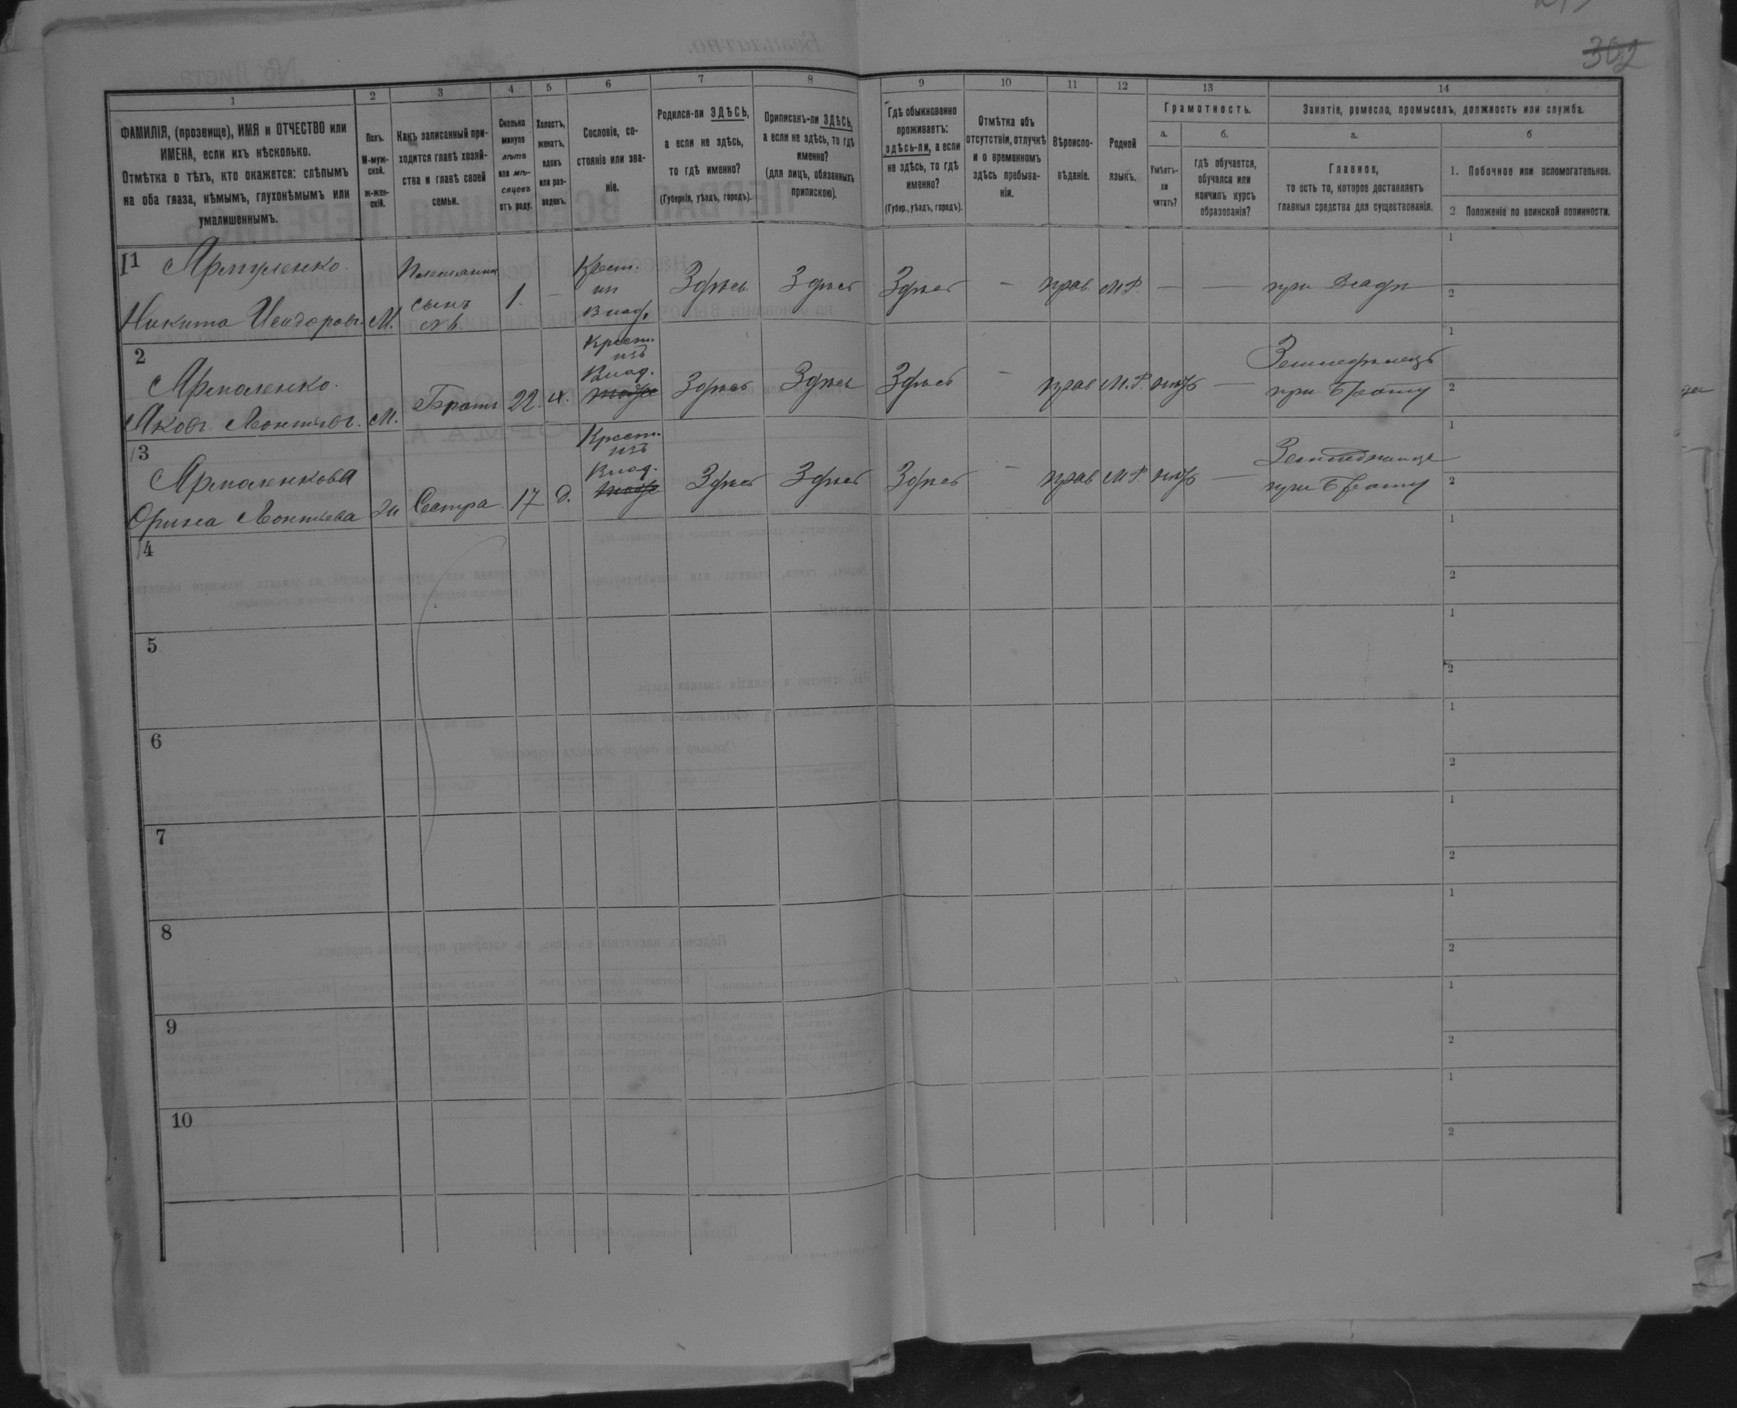 302
1
2
3
4
5
6
7
8
9
10
11
12
13
14
ФАМИЛІЯ, (прозвище), ИМЯ и ОТЧЕСТВО или
ИМЕНА, если ихъ нѣсколько.
Отмѣтка о тѣхъ, кто окажется: слѣпымъ
на оба глаза, нѣмымъ, глухонѣмымъ или
умалишеннымъ.
Полъ.
М-муж-
ской.
ж-жен-
скій.
Какъ записанный при-
ходится главѣ хозяй-
ства и главѣ своей
семьи.
Сколько
минуло
лѣтъ
или мѣ-
сяцевъ
отъ роду.
Холостъ,
женатъ,
вдовъ
или раз-
веденъ.
Сословіе, со-
стояніе или зва-
ніе.
Родился-ли ЗДѢСЬ,
а если не здѣсь,
то гдѣ именно?
(Губернія, уѣздъ, городъ).
Приписанъ-ли ЗДѢСЬ,
а если не здѣсь, то гдѣ
именно?
(для лицъ, обязанныхъ
припискою).
Гдѣ обыкновенно
проживаетъ:
здѣсь-ли, а если
не здѣсь, то гдѣ
именно?
(Губер., уѣздъ, городъ).
Отмѣтка объ
отсутствіи, отлучкѣ
и о временномъ
здѣсь пребыва-
ніи.
Вѣроиспо-
вѣданіе.
Родной
языкъ.
Грамотность.
а.
б.
Умѣетъ-
ли
читать?
гдѣ обучается,
обучался или
кончилъ курсъ
образованія?
Занятіе, ремесло, промыселъ, должность или служба.
а.
б
Главное,
то есть то, которое доставляетъ
главныя средства для существованія.
1. Побочное или вспомогательное.
2 Положеніе по воинской повинности.
1
Никита
М.
сынъ
1.
—
Крест.
из
Влад.
Здѣсь
Здѣсь
Здѣсь
—
прав
М.Р.
—
—
при
1
2
2
Ярмоленко.
Яковъ Леонтьевъ.
М.
Братъ
22.
х.
Крест.
изъ
Влад.
Здѣсь
Здѣсь
Здѣсь
—
прав
М.Р.
нѣтъ
—
Земледѣлецъ
при Братѣ
1
2
3
Ярмоленкова
Орина Леонтьева
ж
Сестра
17
д.
Крест.
изъ
Влад.
Здѣсь
Здѣсь
Здѣсь
—
прав
М.Р
нѣтъ
—
при Братѣ
1
2
4
1
2
5
1
2
6
1
2
7
1
2
8
1
2
9
1
2
10
1
2